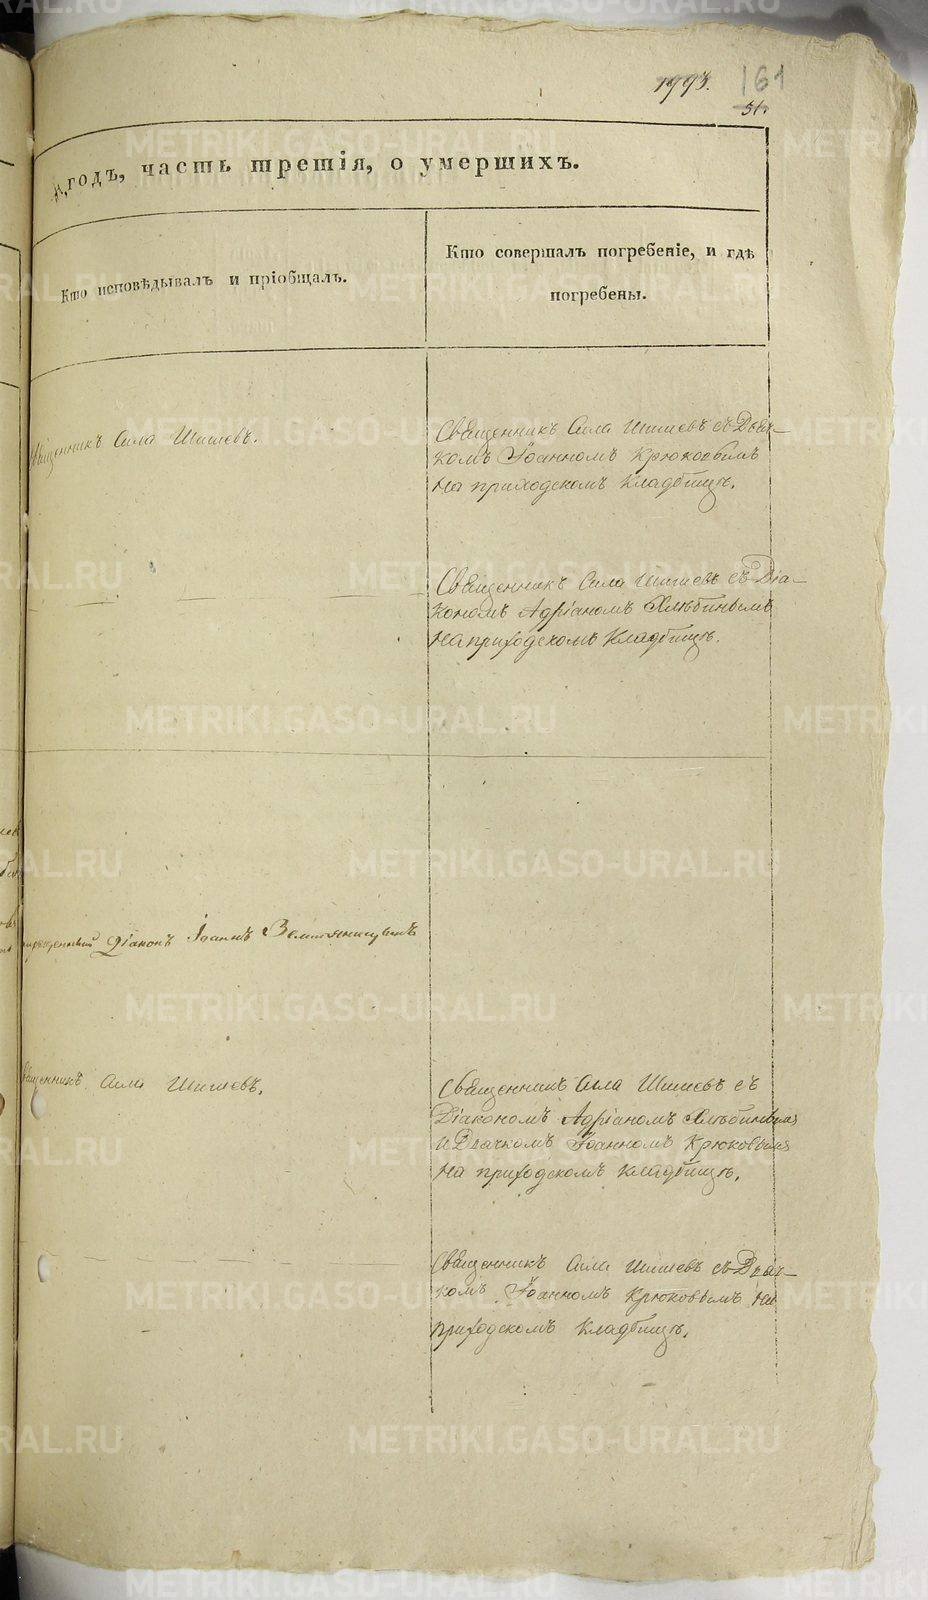 1993. 161
51.
годъ, часть третія, о умершихъ.
Кто исповѣдывалъ и пріобщалъ.
Кто совершалъ погребеніе, и гдѣ
погребены.
Священникъ Сила Шишевъ.
Священникъ Сила Шишевъ съ Дьяч-
комъ Іоанномъ Крюковымъ
на приходскомъ кладбищѣ.
Священникъ Сила Шишевъ съ Діа-
кономъ Адріаномъ
на приходскомъ кладбищѣ.
Діаконъ Іоаннъ
Священникъ Сила Шишевъ.
Священникъ Сила Шишевъ съ
Діакономъ Адріаномъ
и Дьячкомъ Іоанномъ Крюковымъ
на приходскомъ кладбищѣ.
Священникъ Сила Шишевъ съ Дьяч-
комъ Іоанномъ Крюковымъ на
приходскомъ кладбищѣ.
METRIKI.GASO-URAL.RU